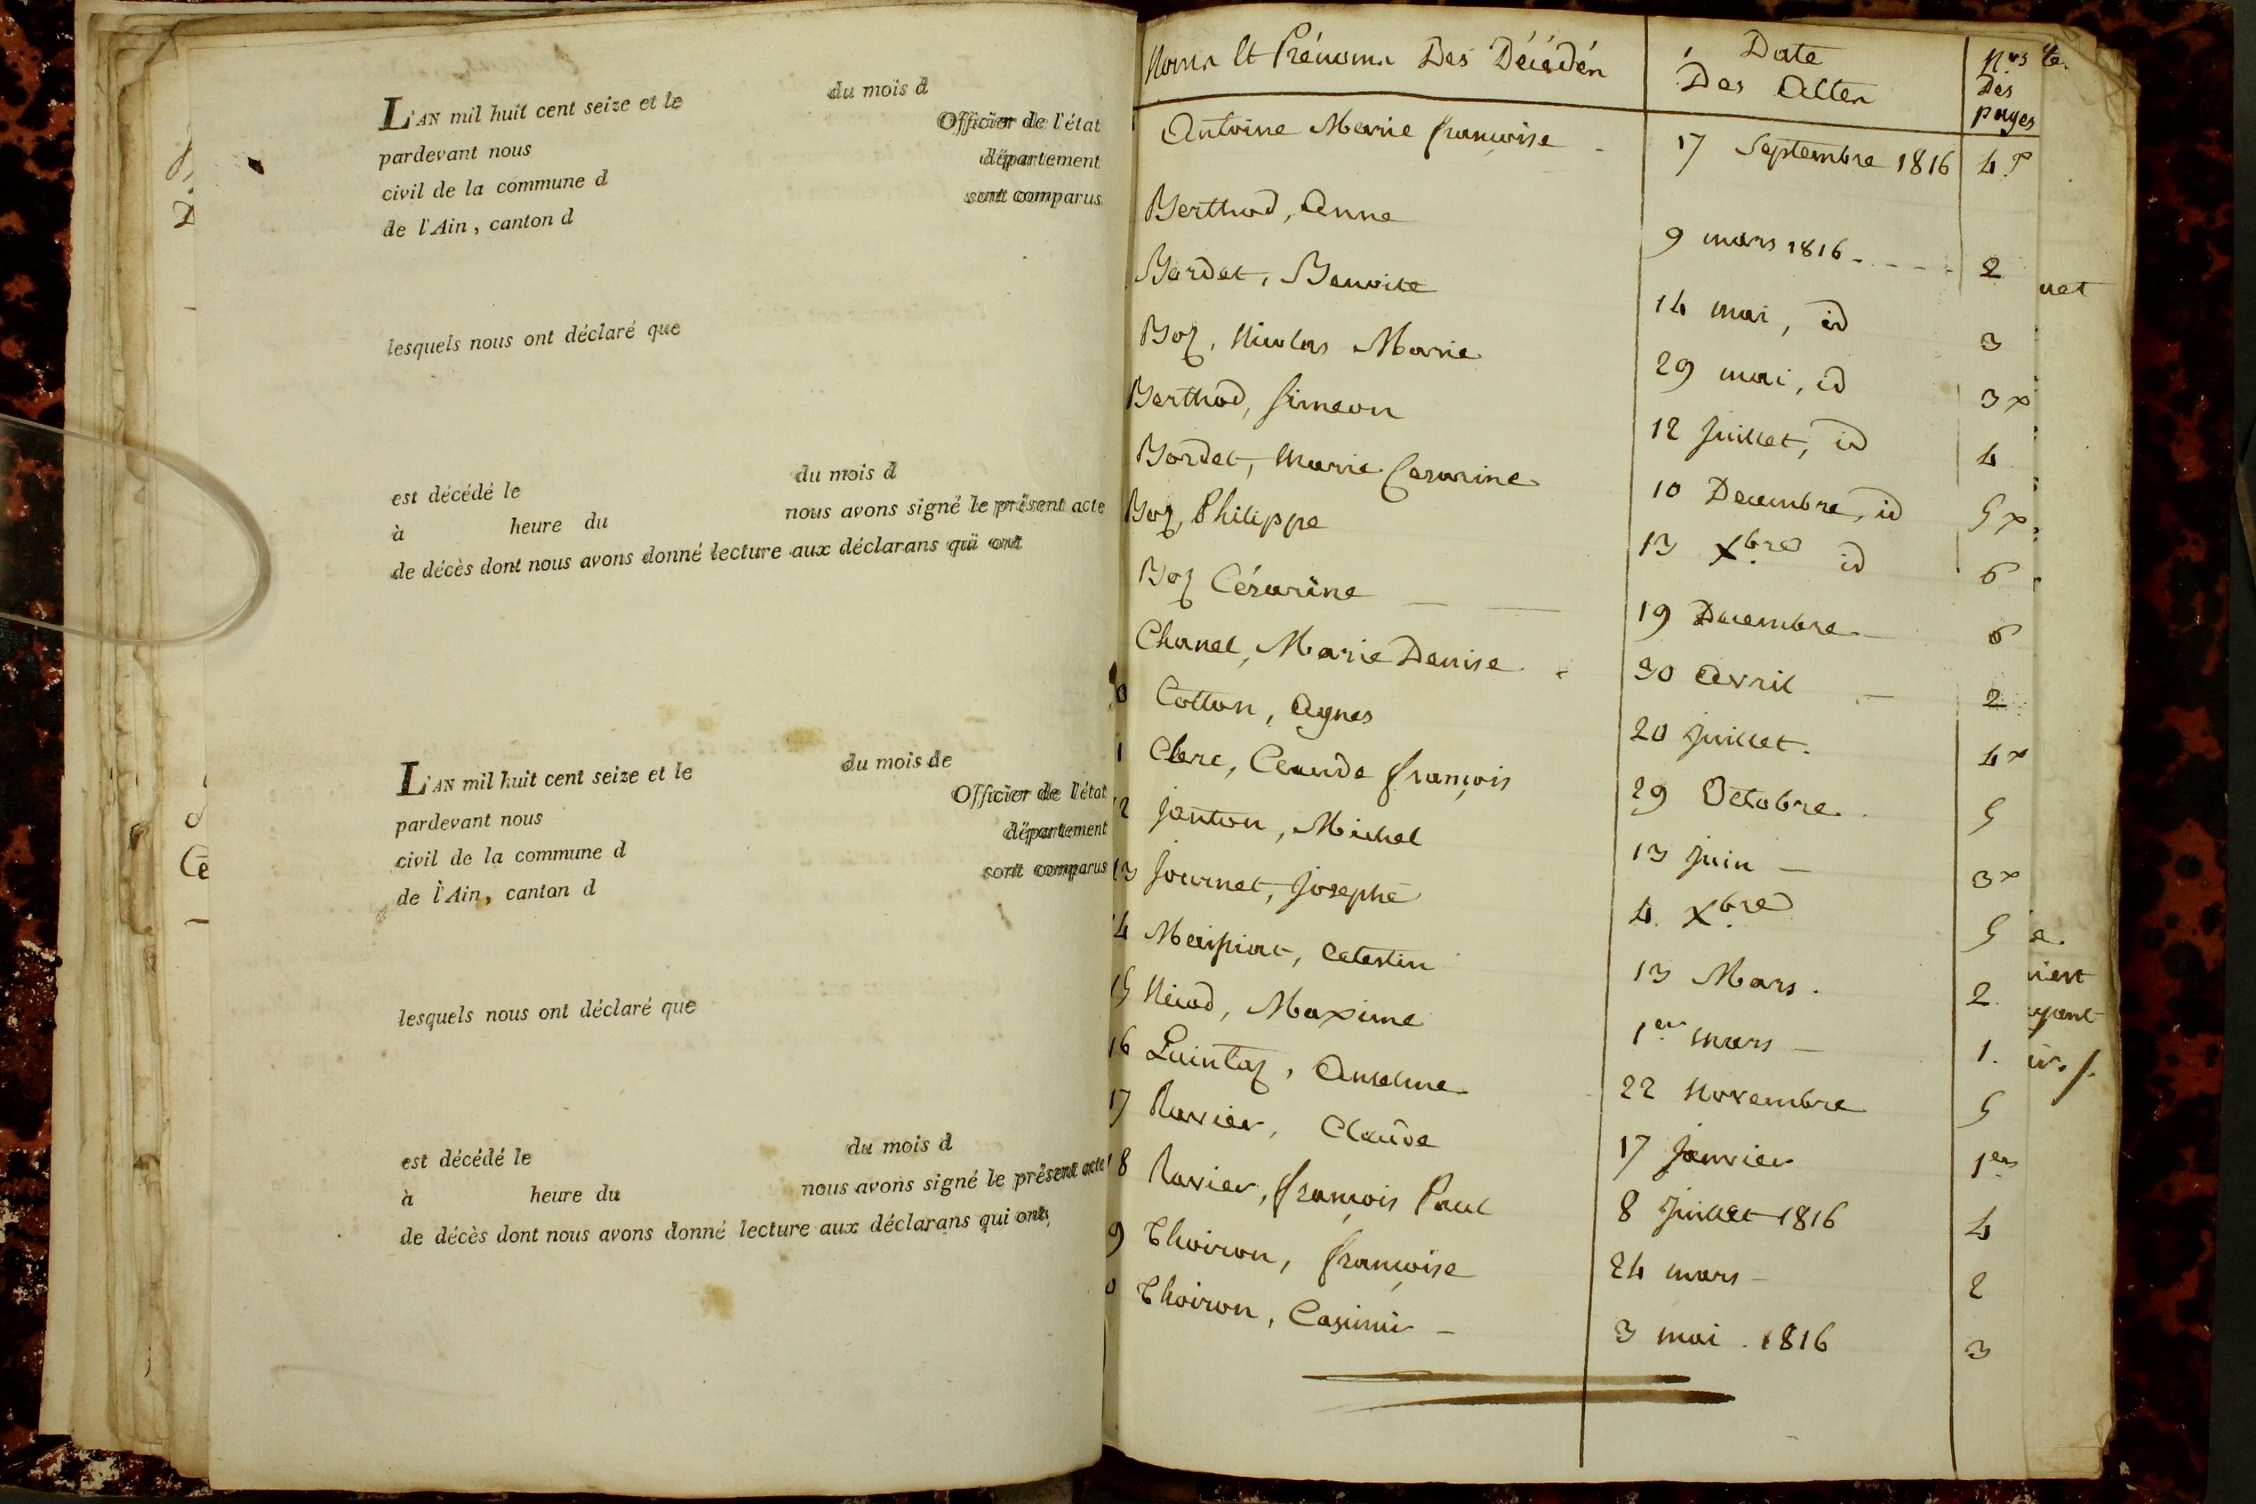 L'AN mil huit cent seize et le du mois d
pardevant nous Officier de l'état
civil de la commune d département
de l'Ain, canton d sont comparus
lesquels nous ont déclaré que
est décédé le du mois d
à heure du nous avons signé le présent acte
de décès dont nous avons donné lecture aux déclarans qui ont
L'AN mil huit cent seize et le du mois de
pardevant nous Officier de l'état
civil de la commune d département
de l'Ain, canton d sont comparus
lesquels nous ont déclaré que
est décédé le du mois d
à heure du nous avons signé le présent acte
de décès dont nous avons donné lecture aux déclarans qui ont
Noms Et Prénoms Des Décédés Date Des Actes Nros Des pages
Antoine Marie françoise 17 Septembre 1816 4
Berthod, Anne 9 mars 1816 2
Bordet, Benoite 14 mai, id 3
Boz, Nicolas Marie 29 mai, id 3
Berthod, Simeon 12 Juillet, id 4
Bordet, Marie Cesarine 10 Decembre, id 5
Boz, Philippe 13 Xbre id 6
Boz Césarine 19 Decembre 6
Chanel, Marie Denise 30 Avril 2
0 Cotton, Agnes 20 Juillet 4
1 Clerc, Claude françois 29 Octobre 5
2 Janton, Michel 13 Juin 3
13 Journet, Josephe 4 Xbre 5
4 Maissiat, Celestin 13 Mars 2
15 Nicod, Maxime 1er mars 1
16 Quintaz, Anselme 22 Novembre 5
17 Ravier, Claude 17 Janvier 1er
8 Ravier, françois Paul 8 Juillet 1816 4
9 Thoiron, françoise 24 mars 2
0 Thoiron, Casimir 3 mai 1816 3